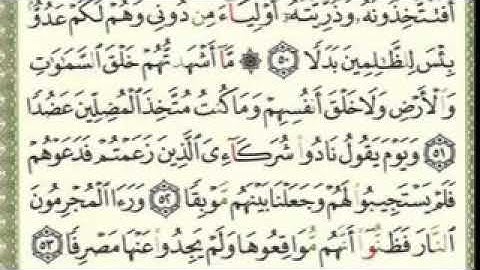 أَفَتَتَّخِذُونَهُۥ وَذُرِّيَّتَهُۥٓ أَوْلِيَآءَ مِن دُونِى وَهُمْ لَكُمْ عَدُوٌّۢ
بِئْسَ لِلظَّٰلِمِينَ بَدَلًا ۝٥٠ ۞ مَّآ أَشْهَدتُّهُمْ خَلْقَ ٱلسَّمَٰوَٰتِ
وَٱلْأَرْضِ وَلَا خَلْقَ أَنفُسِهِمْ وَمَا كُنتُ مُتَّخِذَ ٱلْمُضِلِّينَ عَضُدًا
۝٥١ وَيَوْمَ يَقُولُ نَادُوا۟ شُرَكَآءِىَ ٱلَّذِينَ زَعَمْتُمْ فَدَعَوْهُمْ
فَلَمْ يَسْتَجِيبُوا۟ لَهُمْ وَجَعَلْنَا بَيْنَهُم مَّوْبِقًا ۝٥٢ وَرَءَا ٱلْمُجْرِمُونَ
ٱلنَّارَ فَظَنُّوٓا۟ أَنَّهُم مُّوَاقِعُوهَا وَلَمْ يَجِدُوا۟ عَنْهَا مَصْرِفًا ۝٥٣